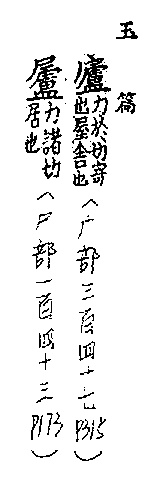 玉篇
廬力於切寄也屋舍也（广部三百四十七P315）
㞖力諸切居也（尸部一百四十三P173）